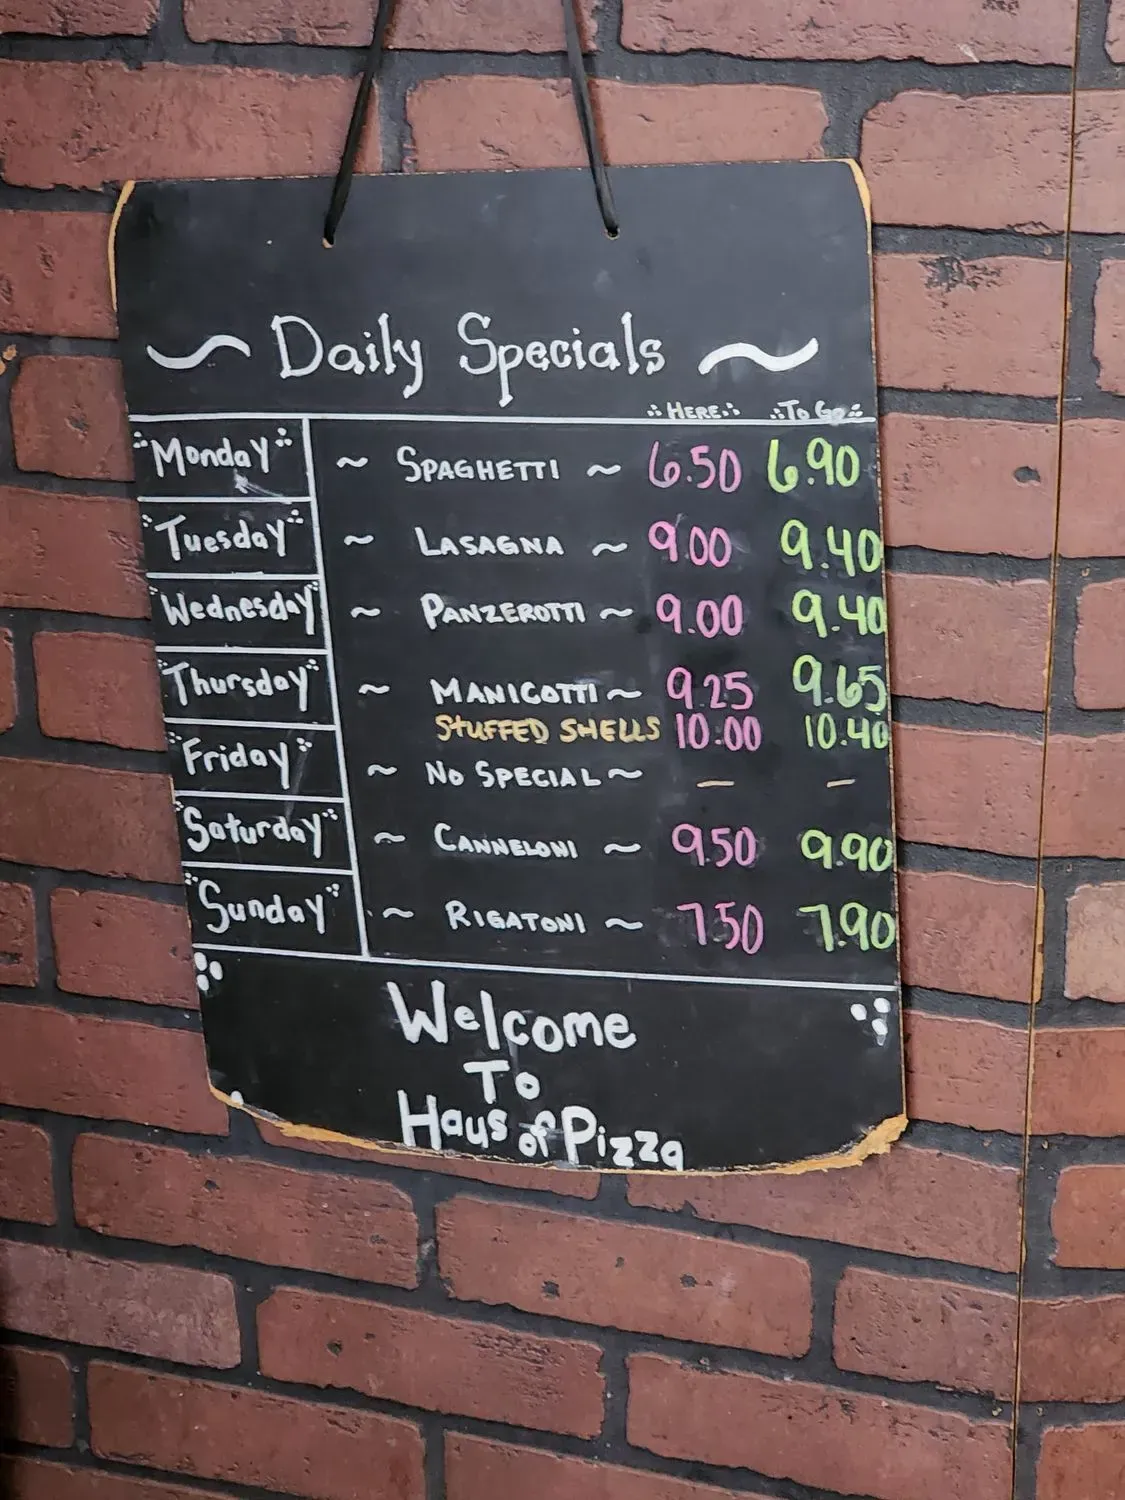 ~ Daily Specials ~
HERE To Go
Monday ~ SPAGHETTI ~ 6.50 6.90
Tuesday ~ LASAGNA ~ 9.00 9.40
Wednesday ~ PANZEROTTI ~ 9.00 9.40
Thursday ~ MANICOTTI ~ 9.25 9.65
STUFFED SHELLS 10.00 10.40
Friday ~ NO SPECIAL ~ — —
Saturday ~ CANNELONI ~ 9.50 9.90
Sunday ~ RIGATONI ~ 7.50 7.90
Welcome
To
Haus of Pizza